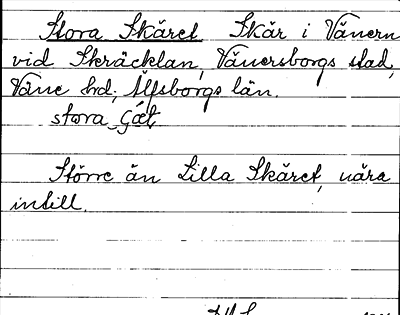 Stora Skäret Skär i Vänern
vid Skräcklan, Vänersborgs stad,
Väne hd; Älfsborgs län.
stora
Större än Lilla Skäret, nära
intill.